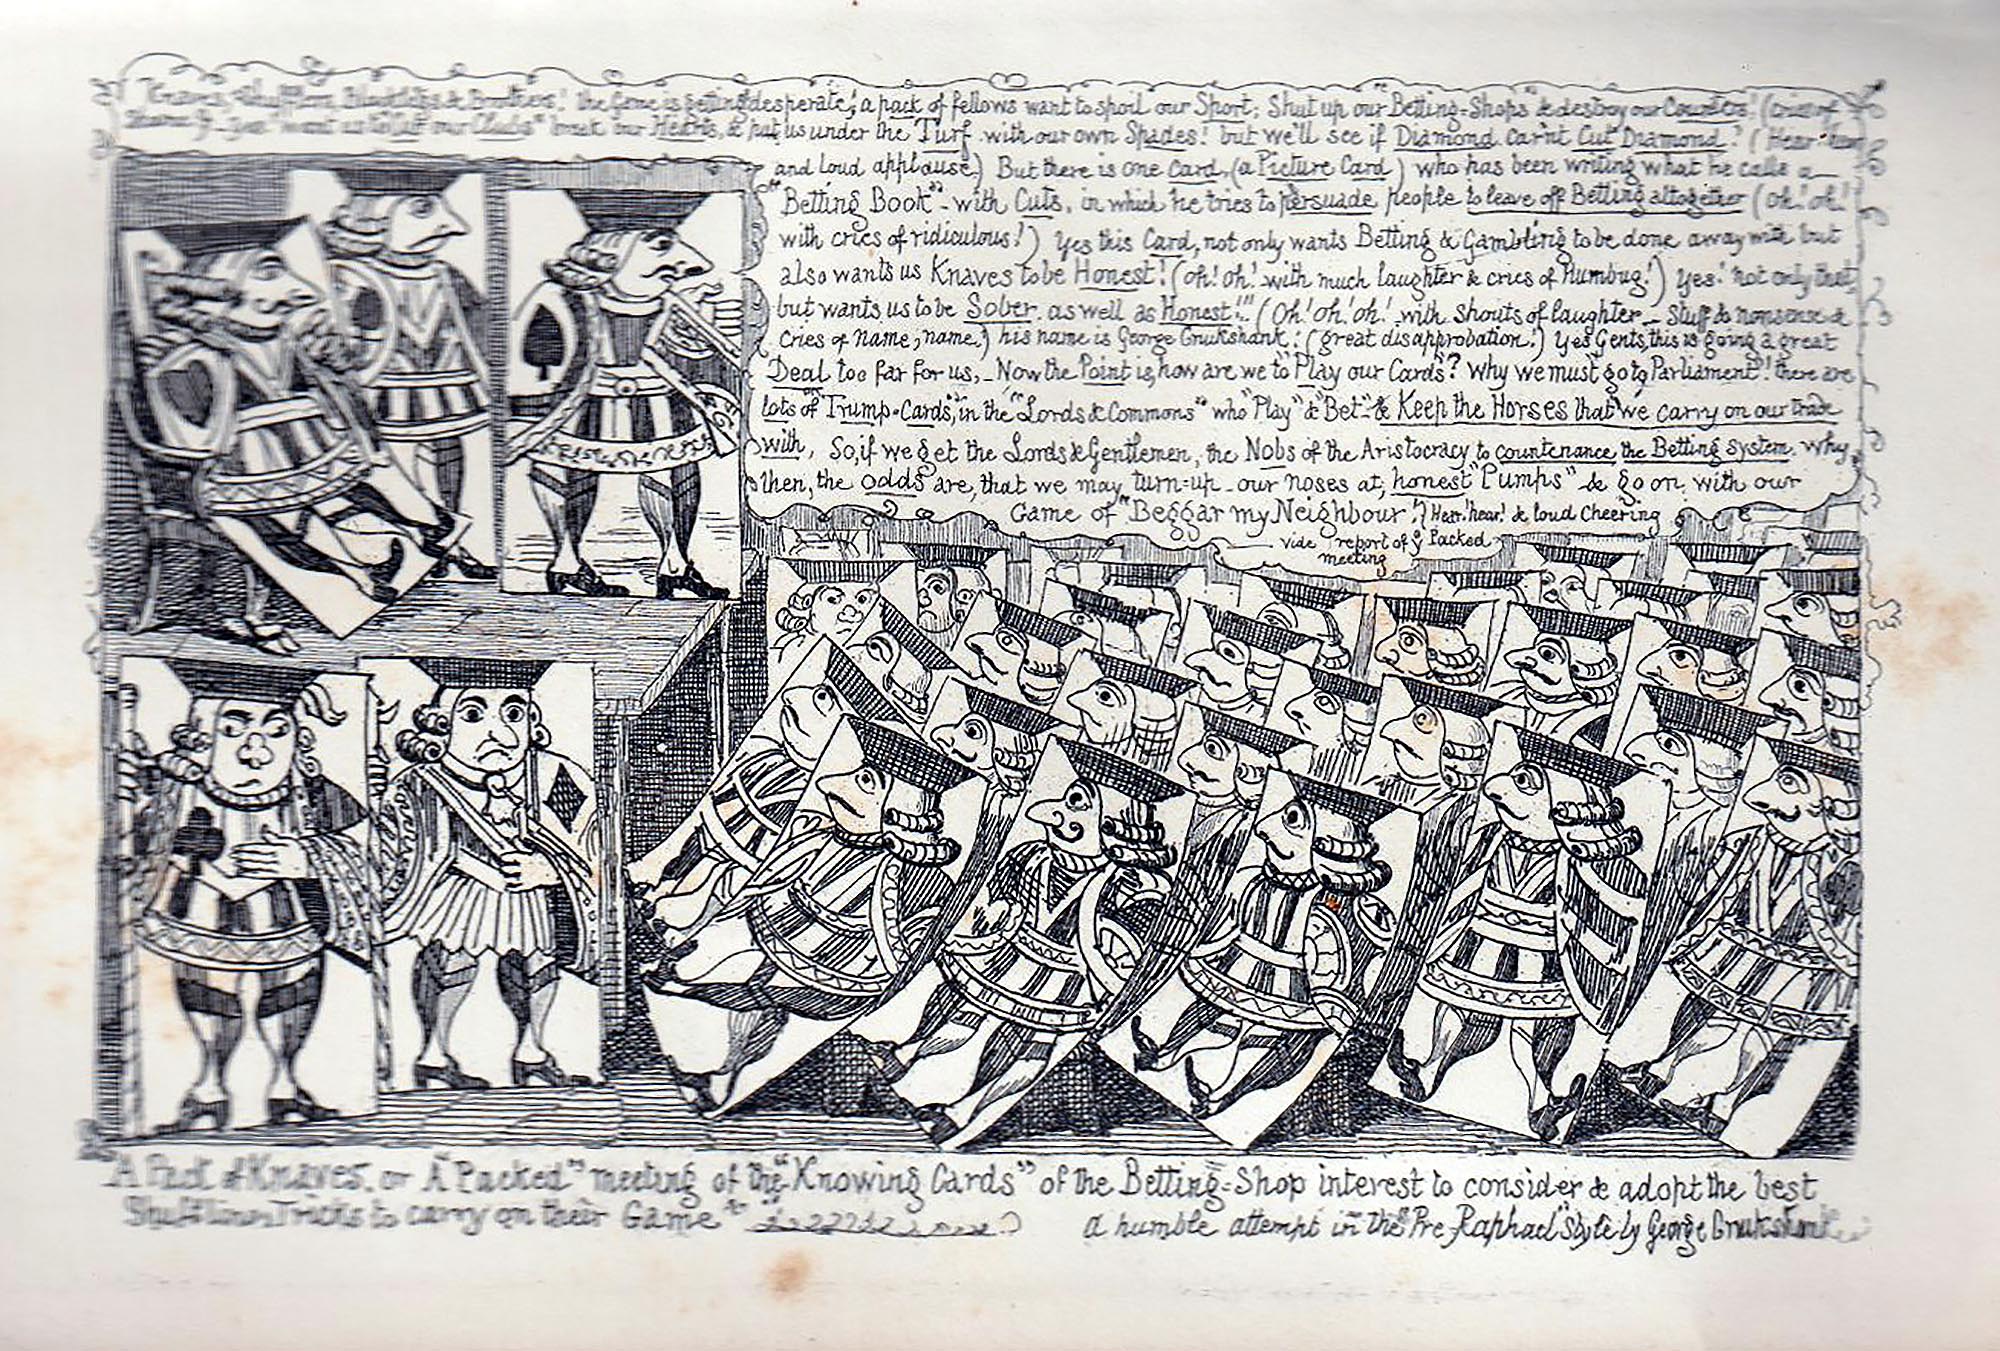 Knaves, Shufflers, Blacklegs & Brothers! the Game is getting desperate, a pack of fellows want to spoil our Sport; Shut up our "Betting-Shops" & destroy our Counters! (cries of
Shame!) - yes! want us to cut our "Clubs" break our Hearts, & put us under the Turf with our own Spades! but we'll see if Diamond carnt Cut Diamond! (Hear! hear
and loud applause.) But there is one Card, (a Picture Card) who has been writing what he calls a
"Betting Book" - with Cuts, in which he tries to persuade people to leave off Betting altogether (oh! oh!
with cries of ridiculous!) Yes this Card, not only wants Betting & Gambling to be done away with but
also wants us Knaves to be Honest! (oh! oh! with much laughter & cries of Humbug!) Yes! not only that,
but wants us to be Sober as well as Honest!!! (Oh! oh! oh! with shouts of laughter - Stuff & nonsense &
cries of Name, name.) his name is George Cruikshank. (great disapprobation.) Yes Gents, this is going a great
Deal too far for us, - Now the Point is, how are we to "Play our Cards"? Why we must "go to Parliament"! there are
lots of "Trump-Cards", in the "Lords & Commons" who "Play" & "Bet" & Keep the Horses that we carry on our trade
with, So, if we get the Lords & Gentlemen, the Nobs of the Aristocracy to countenance the Betting System. Why
then, the odds are, that we may turn-up our noses at, honest "Pumps" & go on with our
Game of "Beggar my Neighbour"! Hear! hear! & loud Cheering
vide report of ye Packed
meeting
A Pack of Knaves, or A "Packed" meeting of the "Knowing Cards" of the Betting-Shop interest to consider & adopt the best
Shuffling Tricks to carry on their Game
a humble attempt in the "Pre-Raphael" Style by George Cruikshank